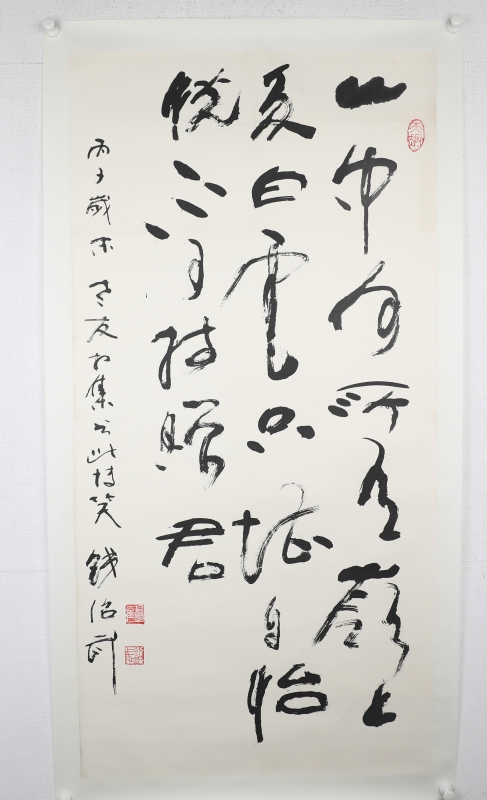 山中何所有岭上
多白云只堪自怡
悦不可持赠君
丙子岁末老友相集书此博笑 钱绍武